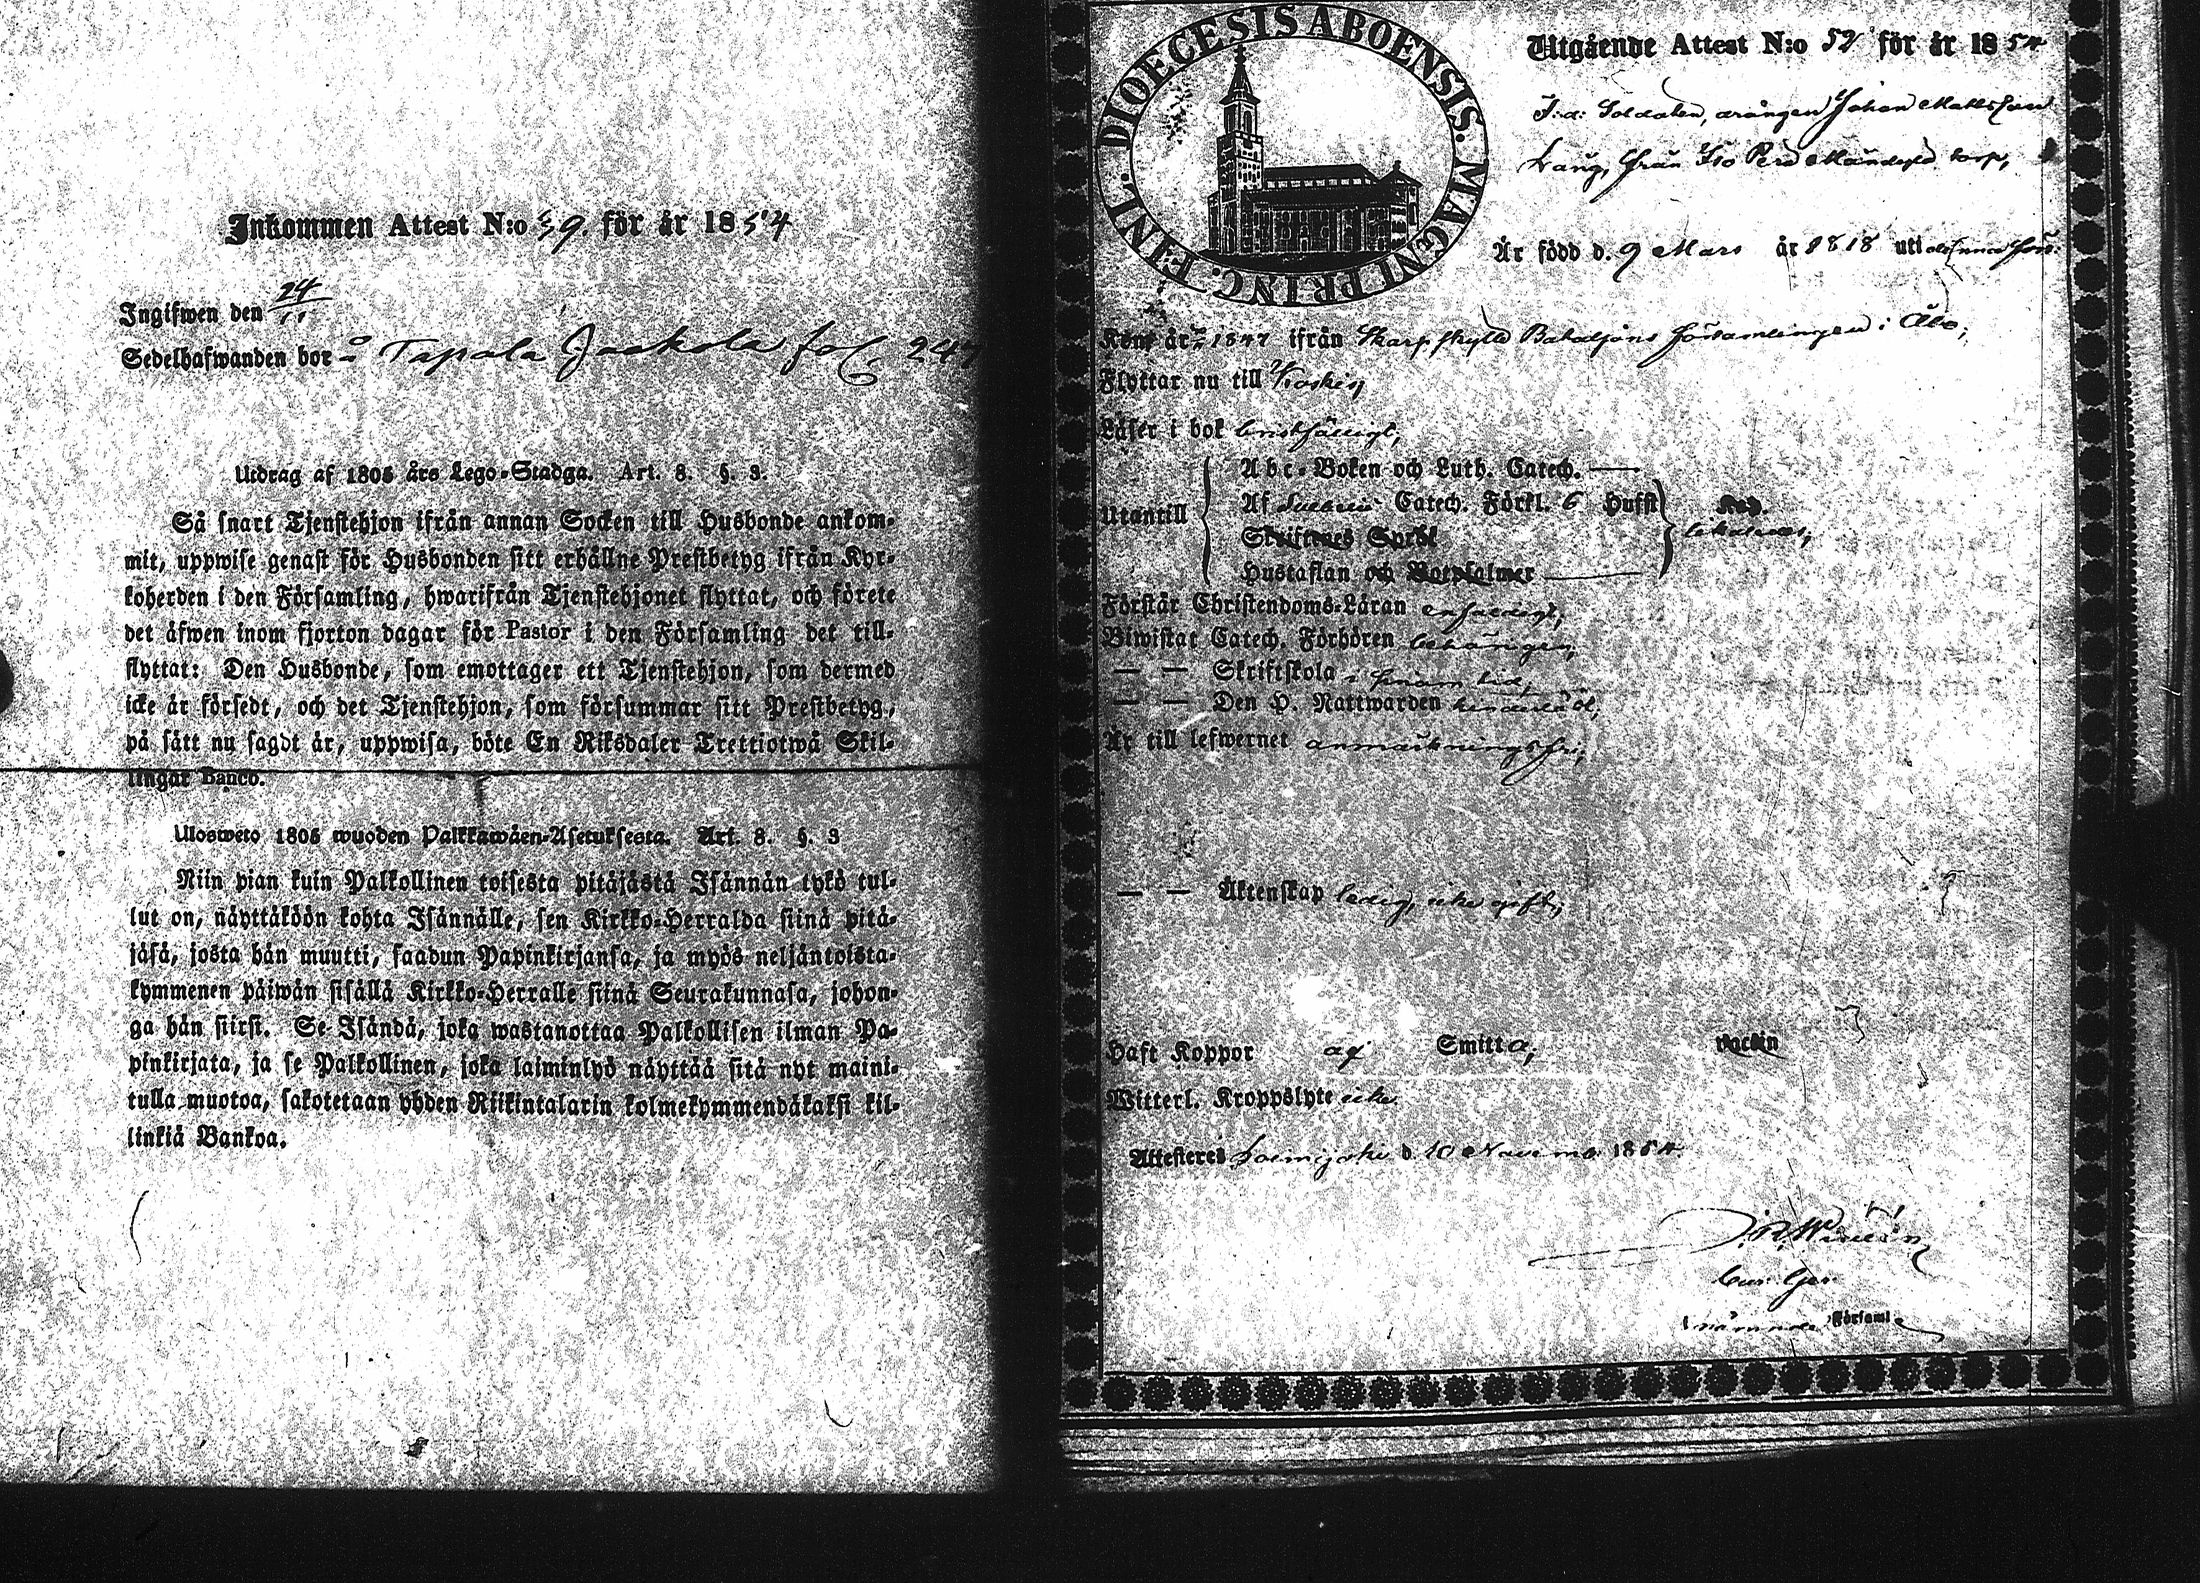 Inkommen Attest N:o 39. för år 1854
Ingifwen den 24/11
Sedelhafwanden bor å Tapala Jaakola fol 247
Utdrag af 1805 års Lego-Stadga. Art. 8. §. 3.
Så snart Tjenstehjon ifrån annan Socken till Husbonde ankom-
mit, uppwise genast för Husbonden sitt erhållne Prestbetyg ifrån Kyr-
koherden i den Församling, hwarifrån Tjenstehjonet flyttat, och förete
det äfwen inom fjorton dagar för Pastor i den Församling det till-
flyttat: Den Husbonde, som emottager ett Tjenstehjon, som dermed
icke är försedt, och det Tjenstehjon, som försummar sitt Prestbetyg,
på sätt nu sagdt är, uppwisa, böte En Riksdaler Trettiotwå Skil-
lingar Banco.
Ulosweto 1805 wuoden Palkkawäen-Asetuksesta. Art. 8. §. 3
Niin pian kuin Palkollinen toisesta pitäjästä Isännän tykö tul-
lut on, näyttäköön kohta Isännälle, sen Kirkko-Herralda siinä pitä-
jäsä, josta hän muutti, saadun Papinkirjansa, ja myös neljäntoista-
kymmenen päiwän sisällä Kirkko-Herralle siinä Seurakunnasa, johon-
ga hän siirsi. Se Isändä, joka wastanottaa Palkollisen ilman Pa-
pinkirjata, ja se Palkollinen, joka laiminlyö näyttää sitä nyt maini-
tulla muotoa, sakotetaan yhden Riikintalarin kolmekymmendäkaksi kil-
linkiä Bankoa.
DIOECESIS ABOENSIS. MAGNI PRINC. FINL.
Utgående Attest N:o 52 för år 1854
F:d: Soldaten, drängen Johan Mattsson
Lång, från Iso Perä Mändylä torp,
Är född d. 9 Mars år 1818 uti denna förs:
Kom år 1847 ifrån Skarpskytte Bataljons församlingen i Åbo,
Flyttar nu till Koskis,
Läser i bok bristfälligt,
Utantill
Abc-Boken och Luth. Catech.
Af Svebelii Catech. Förkl. 6 Hufst
Skriftenes Språk
Hustaflan och Botpsalmer
Förstår Christendoms-Läran enfaldigt,
Biwistat Catech. Förhören behörigen,
— — Skriftskola i sinom tid,
— — Den H. Nattwarden
Är till lefwernet anmärkningsfri,
— — Äktenskap ledig, icke gift,
Haft Koppor af Smitta, vaccin
Witterl. Kroppslyte icke
Attesteres Loimijoki d. 10 Novemb. 1854